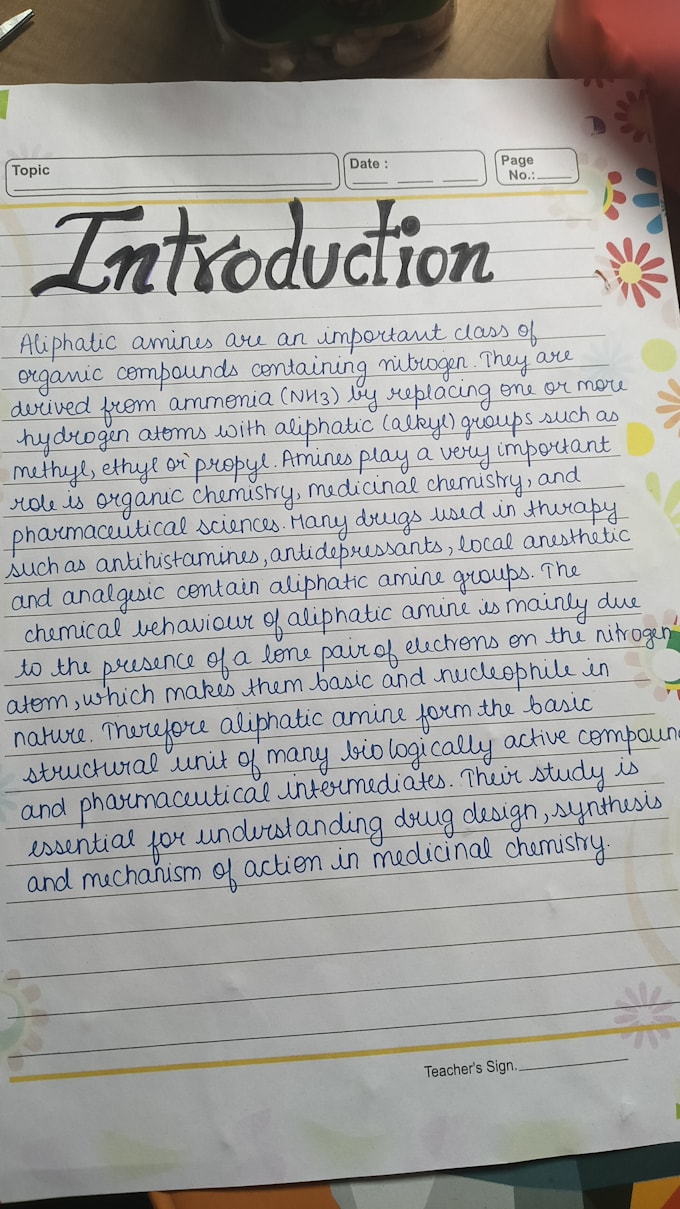 Topic
Date :
Page
No.:
Introduction
Aliphatic amines are an important class of
organic compounds containing nitrogen. They are
derived from ammonia (NH3) by replacing one or more
hydrogen atoms with aliphatic (alkyl) groups such as
methyl, ethyl or propyl. Amines play a very important
role is organic chemistry, medicinal chemistry, and
pharmaceutical sciences. Many drugs used in therapy
such as antihistamines, antidepressants, local anesthetic
and analgesic contain aliphatic amine groups. The
chemical behaviour of aliphatic amine is mainly due
to the presence of a lone pair of electrons on the nitrogen
atom, which makes them basic and nucleophile in
nature. Therefore aliphatic amine form the basic
structural unit of many biologically active compoun
and pharmaceutical intermediates. Their study is
essential for understanding drug design, synthesis
and mechanism of action in medicinal chemistry.
Teacher's Sign.